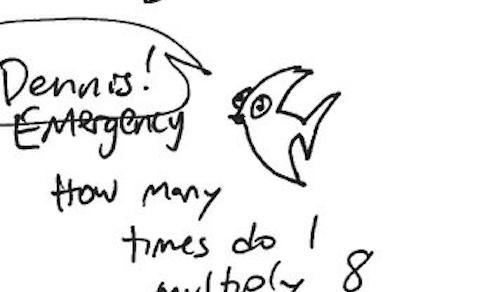 Dennis!
Emergency
How many
times do I
multiply 8